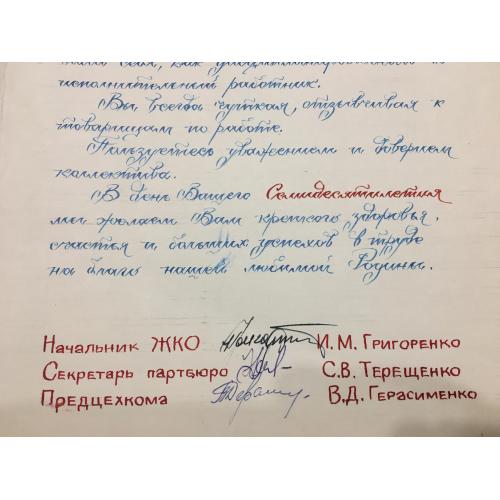 себя, как дисциплинированного и
исполнительный работник.
Вы всегда чуткая, отзывчивая к
товарищам по работе.
Пользуетесь уважением и доверием
коллектива.
В день Вашего Семидесятилетия
мы желаем Вам крепкого здоровья,
счастья и больших успехов в труде
на благо нашей любимой Родины.
Начальник ЖКО И. М. Григоренко
Секретарь партбюро С. В. Терещенко
Предцехкома В. Д. Герасименко